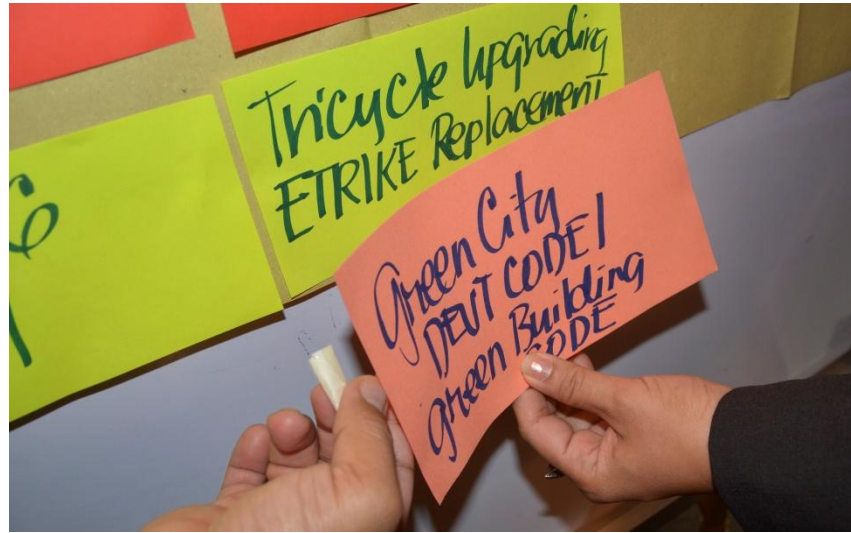 Tricycle Upgrading
ETRIKE Replacement
Green City
DEVT CODE/
green Building
CODE